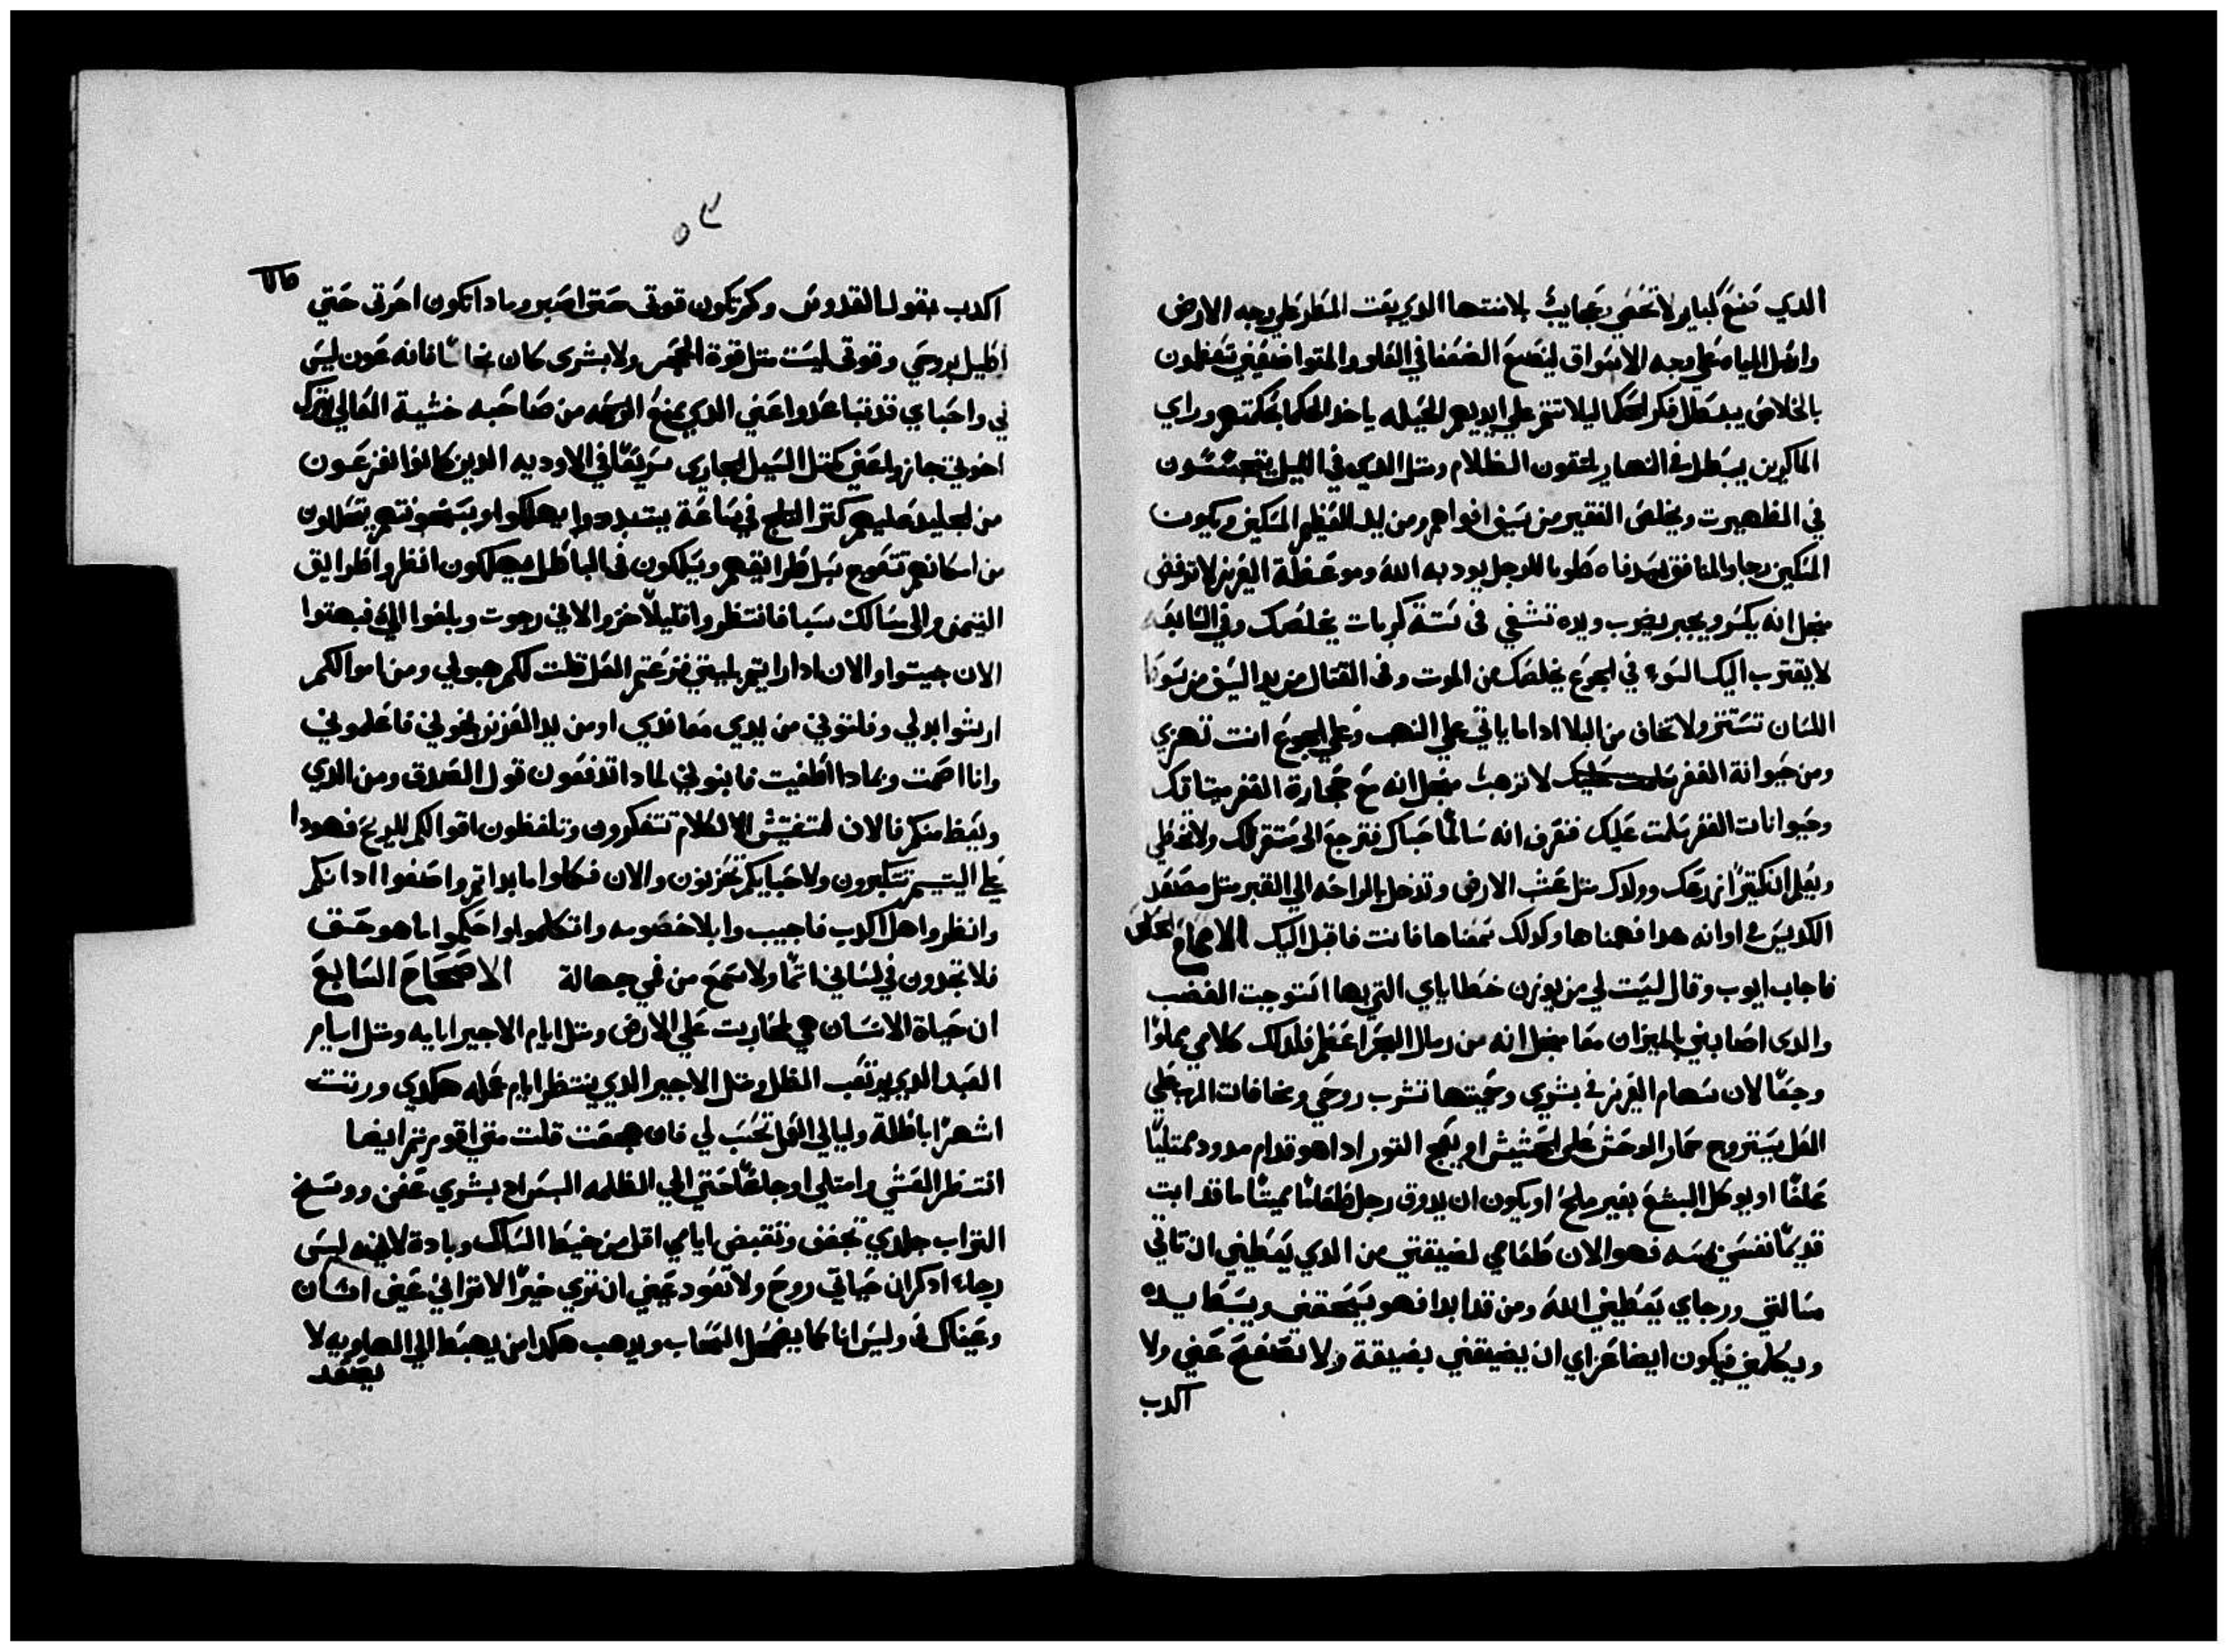 الدي صنع كباير لا تحصي وعجايب بلا منتها الدي يهب المطر علي وجه الارض
وارسل المياه علي وجه الاسواق ليضع الضعفا في العلو والمتواضعين تحفظون
بالخلاص يبطل فكر الحكما ليلا تتم علي ايديهم الحيله ياخد الحكما بحكمتهم وراي
الماكرين يبطل في النهار يلتقون الظلام ومتل الدي في الليل يتجسسون
في الظهيرت ويخلص الفقير من سيف افواههم ومن يد العظيم المسكين ويكون
المسكين رجا والمنافق يسد فاه طوبا للرجل يودبه الله وموعظة العزيز لا ترفض
منجل انه يكسر ويجبر يضرب ويده تشفي في ستة كربات يخلصك وفي السابعه
لا يقترب اليك السوء في الجوع يخلصك من الموت وفي القتال من يد السيف من سوط
اللسان تستتر ولا تخاف من البلا ادا ما ياتي علي النهب وعلي الجوع انت تهزي
ومن حيوانة القفر لا ترهب منجل انه مع حجارة القفر ميتاقك
وحيوانات القفر سلمت عليك فتعرف انه سالمًا حباك فترجع الي مستقرك ولا تخطي
وتعلم انك كتيرًا زرعك وولدك متل عشب الارض وتدخل بالراحه الي القبر متل مصعد
الكديس في اوانه هدا فهمناها وكدلك سمعناها فانت فاقبل اليك الاصحاح
فاجاب ايوب وقال ليت لي من يوزن خطاياي التي بها استوجبت الغضب
والدي اصابني بالميزان معا منجل انه من رمال البحر اعظم فلدلك كلامي مملوا
وجعًا لان سهام العزيز في بشري وحميتها تشرب روحي ومخافات الرب علي
العل يستروح حمار الوحش علي الحشيش او يهج التور ادا هو قدام مدود ممتليًا
علفًا او يوكل البشع بغير ملح او يكون ان يدوق رجل طعامًا ميتًا ما قد ابت
قديمًا نفسي تمسه فهو الان طعامي لضيقتي من الدي يعطيني ان تاتي
مسالتي ورجاي يعطيني الله ومن قد ابدا فهو يسحقني ويبسط يده
ويكلمني فيكون ايضا عزاي ان يضيقني بضيقة ولا تصفح عني ولا
اكدب
اكدب بقول القدوس وكم تكون قوتي حتي اصبر وما دا تكون اخرتي حتي
اطيل بروحي وقوتي ليست متل قوة الحجر ولا بشري كان نحاسًا فانه عون ليس
في واحباي قد تباعدوا عني الدي يمنع الرحمه من صاحبه خشية العالي يترك
اخوتي جازوا عني كمتل السيل الجاري سريعًا في الاوديه الدين كانوا يفزعون
من الجليد عليهم كتر التلج في ساعة يتبددوا يهلكوا وبسخونتهم يتحللون
من امكانهم تتعوج سبل طرايقهم ويسلكون في الباطل فيهلكون انظروا طرايق
التيمن والي مسالك سبا فانتظروا قليلًا خزوا لاني رجوت وبلغوا الي فبهتوا
الان جيتوا والان ادا رايتم بليتي فزعتم العل قلت لكم هبو لي ومن اموالكم
ارشوا بدلي وفلتوني من يدي معاندي او من يد العزيز نجوني فاعلموني
وانا اصمت وبما دا اطغيت فابنو لي لما دا تدفعون قول الصدق ومن الدي
ويعظ منكم فالان لتفتيش الكلام تتفكرون وتلفظون اقوالكم للريح فهودا
علي اليتيم تتكبرون ولاحبايكم تحزنون والان فكلوا ما بداتم واصغوا ادانكم
وانظروا هل اكدب فاجيبوا بلا خصومه واتكلموا واحكموا ما هو حق
فلا تجدون في لساني اتمًا ولا تسمع من فمي جهالة الاصحاح السابع
ان حياة الانسان هي لمحاربت علي الارض ومتل ايام الاجير ايامه ومتل ايام
العبد الدي يرتقب الظل ومتل الاجير الدي ينتظر ايام عمله هكدي ورتت
اشهرًا باطلة وليالي العل تحسب لي فان هجعت قلت متي اقوم تم ايضا
انتظر العشي وامتلي اوجاعًا حتي الي الظلمه البس لحم بشري عفن ووسخ
التراب جلدي تجفف وتقبض ايامي اقل من خيط الساك وبادة لانه ليس
رجاء ادكر ان حياتي روح ولا تعود عيني ان تري خيرًا لا تراني عين انسان
وعيناك في وليس انا كما يضمحل السحاب ويدهب هكدا من يهبط الي الهاويه لا
يصعد